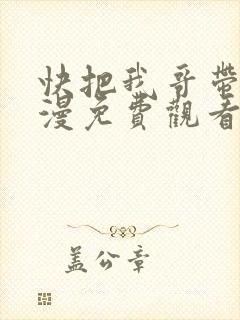 快把我哥帶
漫免費觀看
蓋公章